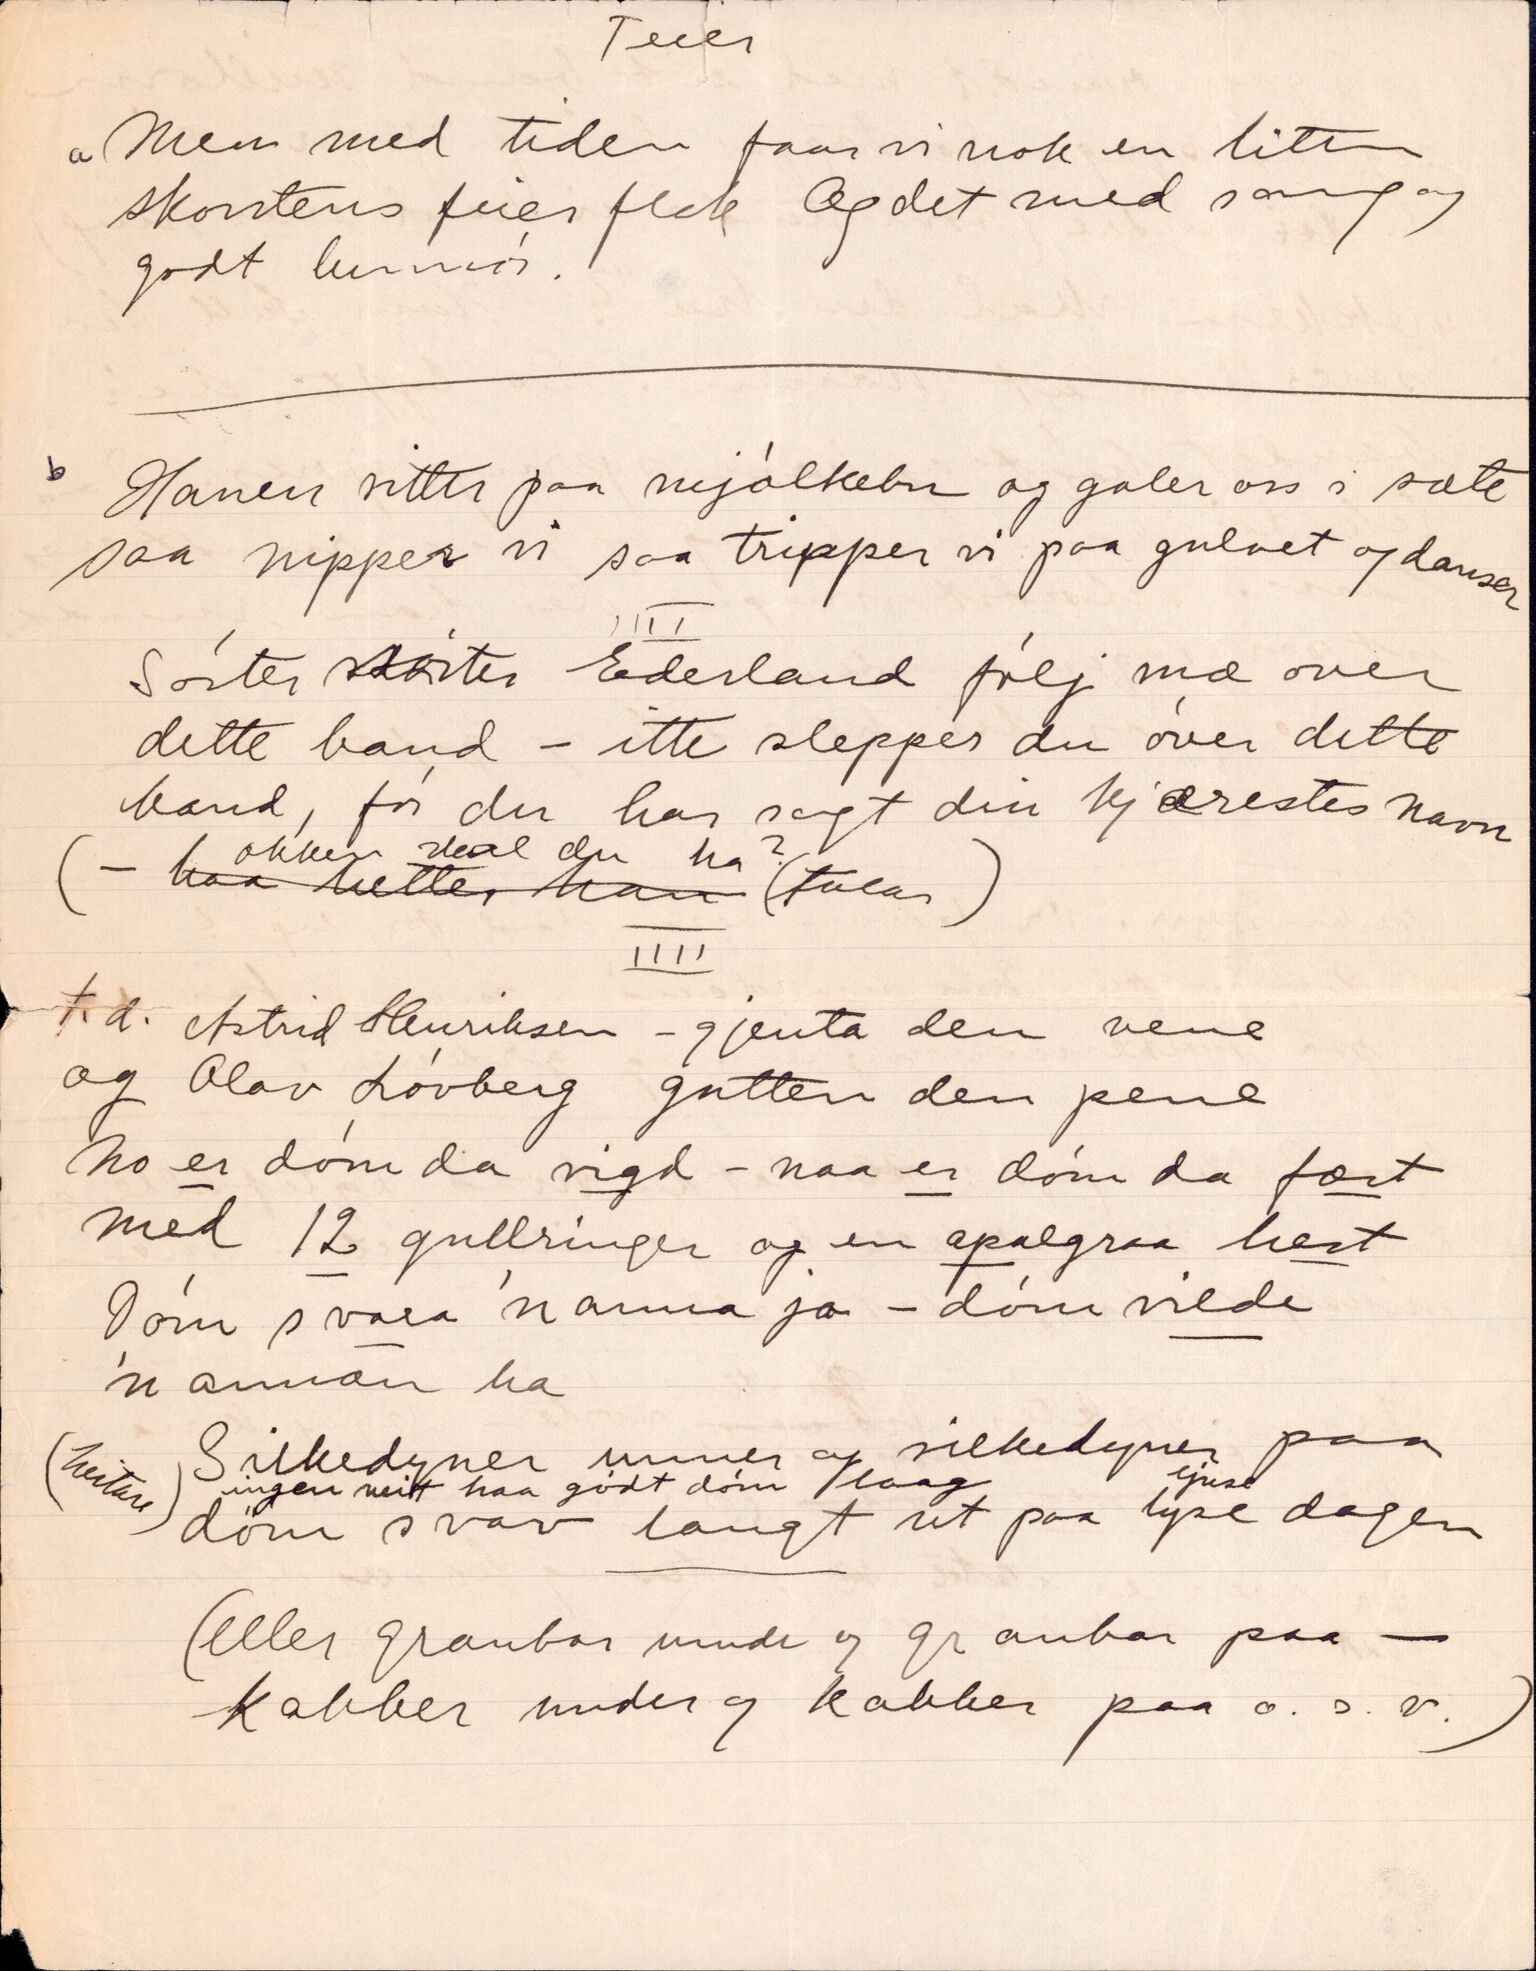 Teier
a Men med tiden faar vi nok en liten
skorstens feier flok Og det med sang og
godt humör.
b Hanen sitter paa mjólkebu og galer oss i sæte
saa nipper vi saa tripper vi paa gulvet og danser
III
Sóster sóster Ederland fólj mæ over
dette band – itte slepper du óver dette
band, fór du har sagt din kjærestes navn
okken skal du ha?
(– haa hetter han (tular)
IIII
t.d. Astrid Henriksen – gjenta den vene
og Olav Lóvberg gutten den pene
No er dóm da vigd – naa er dóm da fæst
med 12 gullringer og en apalgraa hest
Dóm svara 'nanna ja – dóm vilde
'n annan ha
(hviskure) Silkedyner unner og silkedyner paa
ingen veit haa gódt dóm laag ljuse
dóm svav langt ut paa lyse dagen
(eller granbar unde og granbar paa –
kabber under og kabber paa o.s.v.)